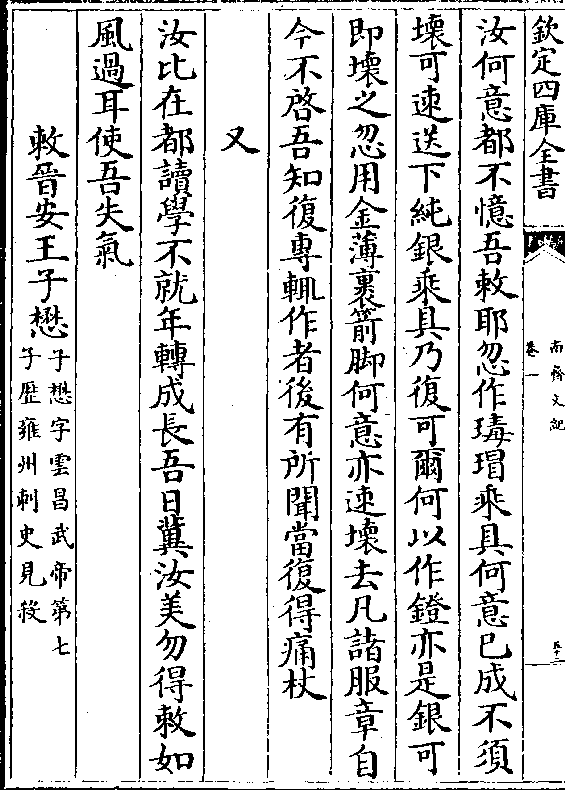 欽定四庫全書
南齊文紀
卷一
五十二
汝何意都不憶吾敕耶忽作瑇瑁乘具何意已成不須
壞可速送下純銀乘具乃復可爾何以作鐙亦是銀可
即壞之忽用金薄裹箭脚何意亦速壞去凡諸服章自
今不啓吾知復專輒作者後有所聞當復得痛杖
又
汝比在都讀學不就年轉成長吾日冀汝美勿得敕如
風過耳使吾失氣
敕晉安王子懋
子懋字雲昌武帝第七
子歷雍州刺史見殺